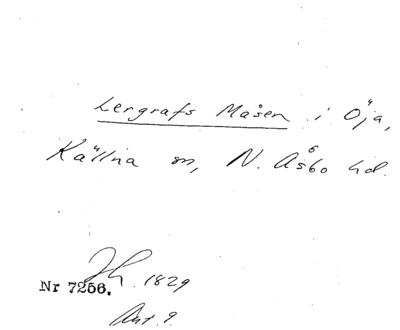 Lergrafs Måsen i Öja,
Källna sn, N. Åsbo hd.
Nr 7256.
1829